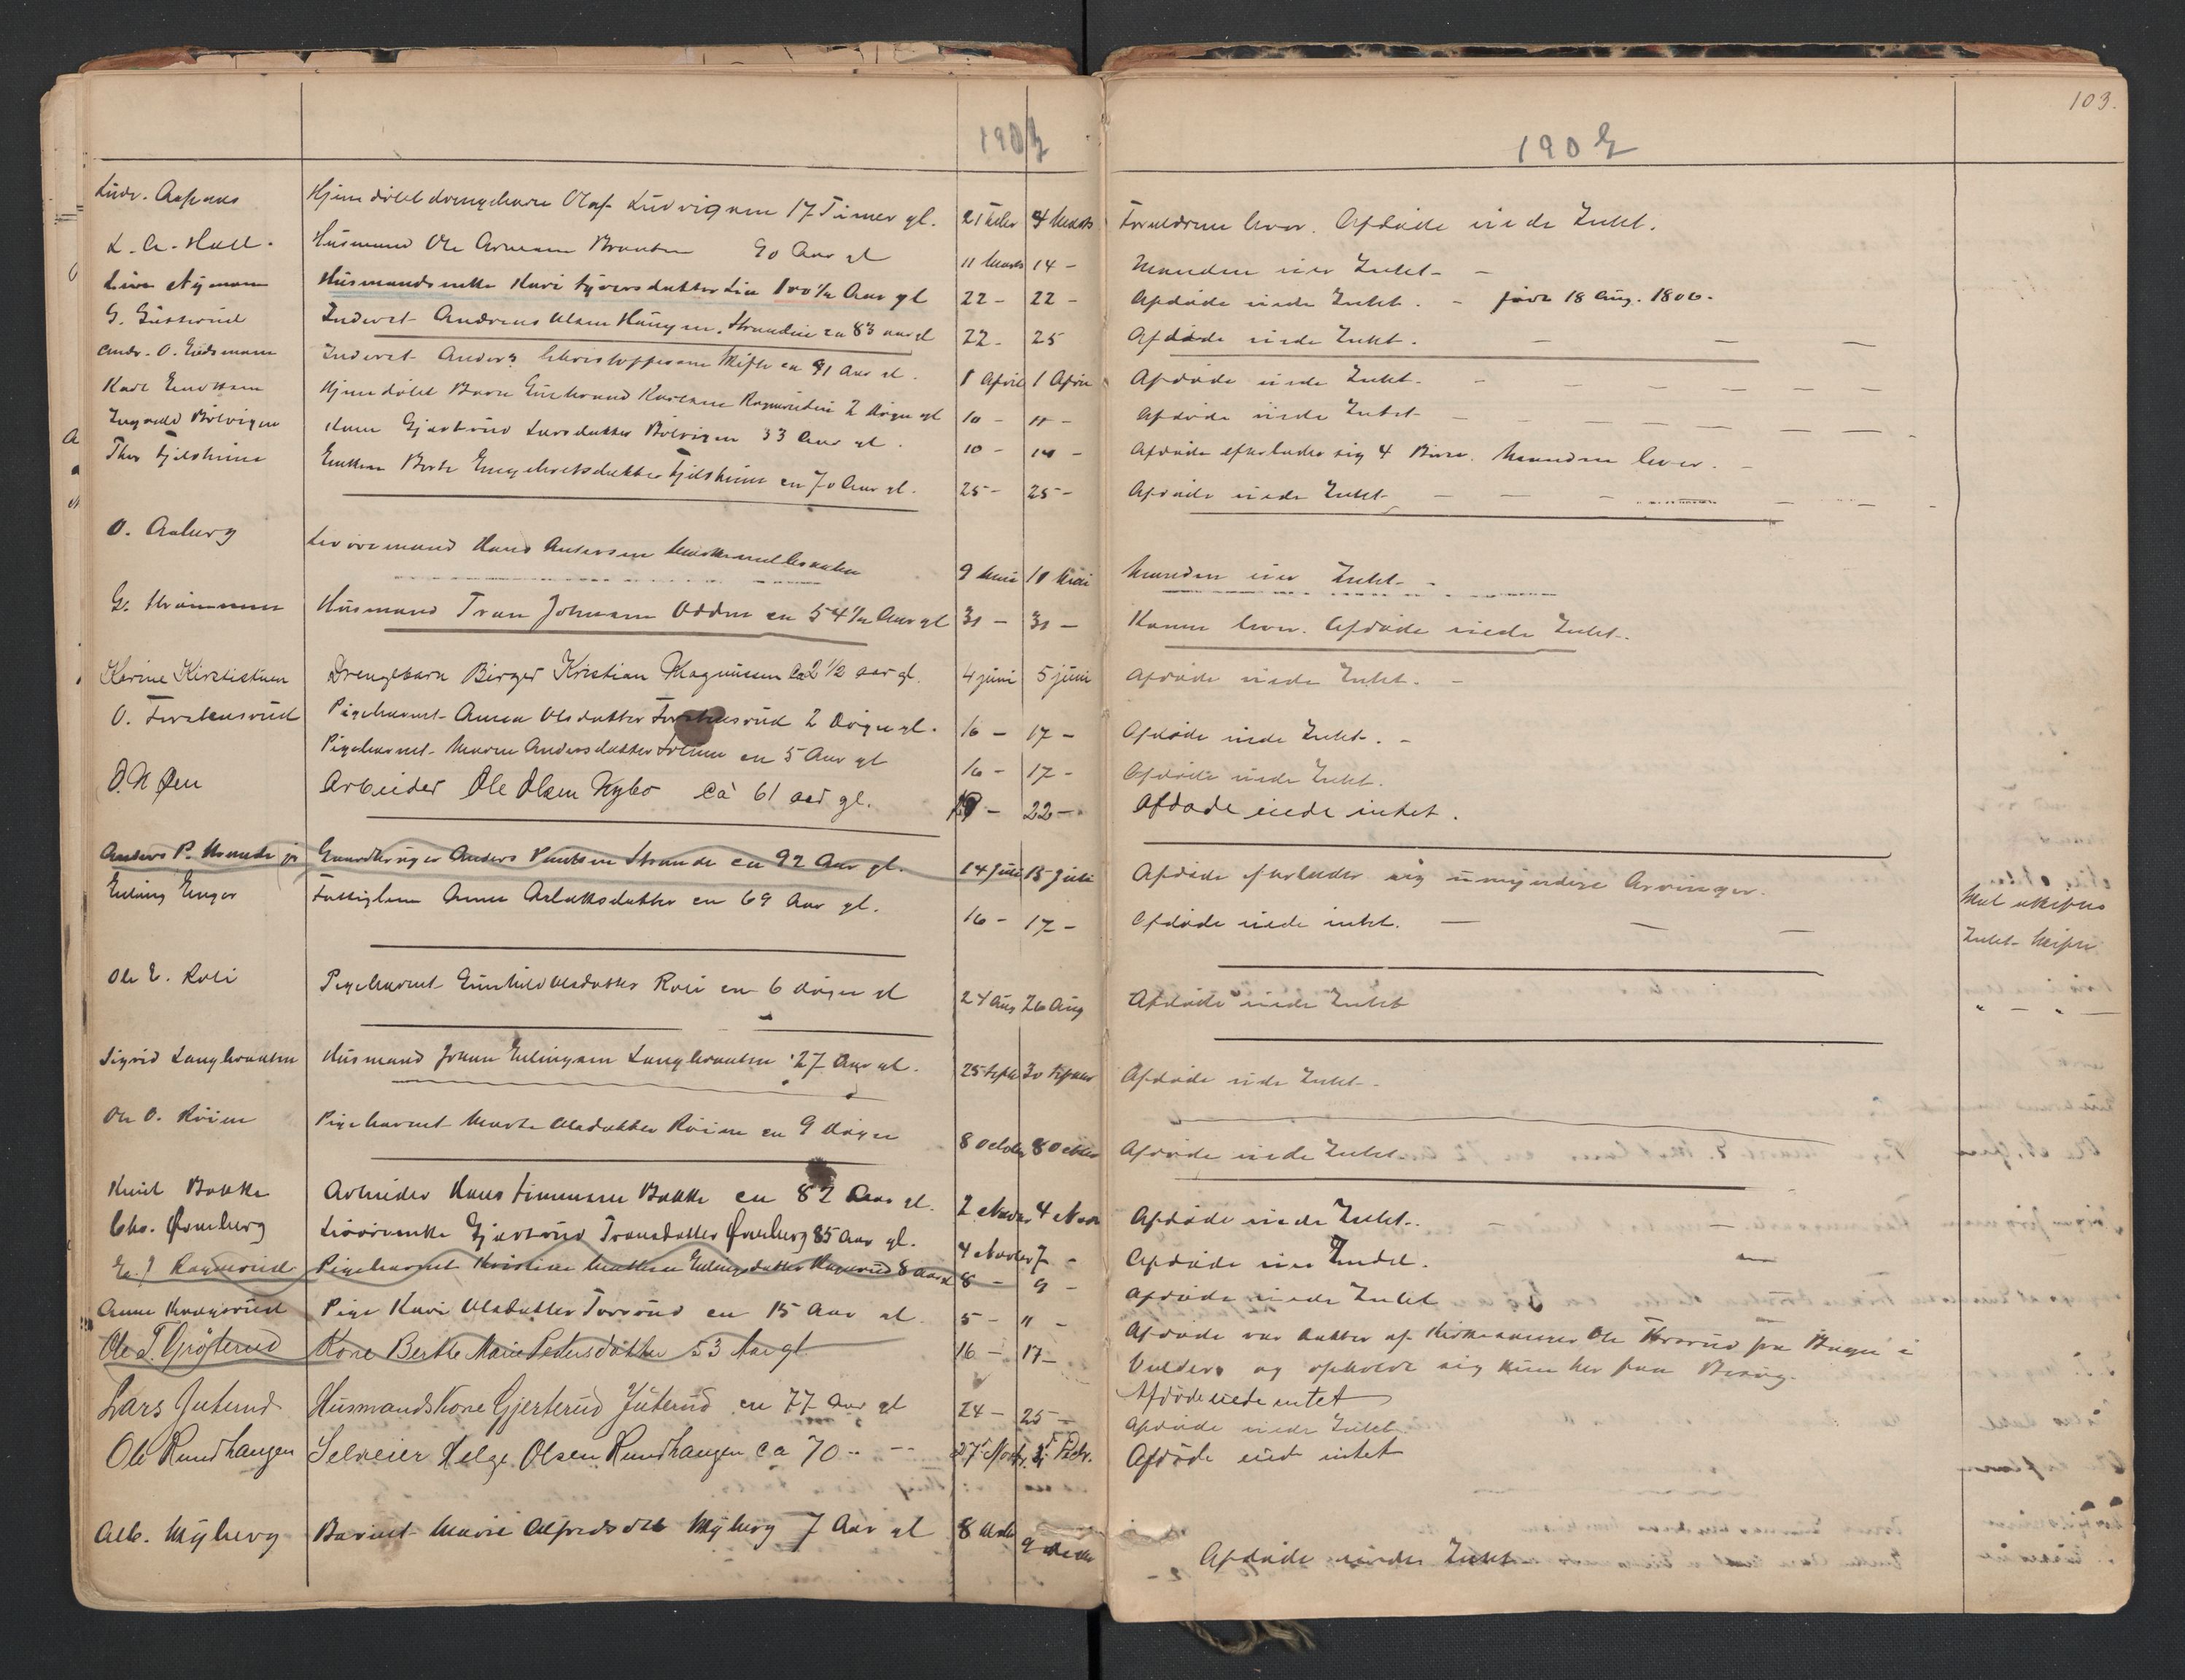 103.
1902
1902
Ludv. Aaspaas Hjemdøbt drengebarn Olaf Ludvigsen 17 Timer gl. 21 Febr 4 Marts Forældrene lever. Afdøde eiede Intet.
L. A. Hall. Husmand Ole Arnesen Braaten 90 Aar gl 11 Marts 14 - Manden eier Intet -
Nyman Husmandsenke Kari Syversdatter Lia 100 ½ Aar gl 22 - 22 - Afdøde eiede Intet. - født 18 Aug. 1801.
G. Gutterud Inderst Andreas Olsen Haugen, Strandei ca 83 aar gl 22 - 25 Afdøde eiede Intet. - - -
Andr. O. Eidsmoen Inderst Anders Christoffersen ca 91 Aar gl. 1 April 1 April Afdøde eiede Intet. -
Karl Hjemdøbt Barn Gulbrand Karlsen 2 Døgn gl 10 - 11 - Afdøde eiede Intet -
Ingvald Bølvigen Kone Gjertrud Larsdatter Bølvigen 33 Aar gl. 10 - 14 - Afdøde efterlader sig 4 Børn. Manden lever. -
Thor Fjeldheim Enken Berte Engebretsdatter Fjeldheim ca 70 Aar gl. 25 - 25 - Afdøde eiede Intet -
O. Aaberg Livøremand Hans Andersen 9 Mai 10 Mai Manden eier Intet -
G. Strømmen Husmand Tran Johnsen Odden ca 54 ½ Aar gl 31 - 31 - Konen lever. Afdøde eiede Intet -
Karine Kirstistuen Drengebarn Birger Kristian Magnussen ca 2 1/2 aar gl. 4 juni 5 juni Afdøde eiede Intet. -
O. Torstensrud Pigebarnet Anna Olsdatter Torstensrud 2 Døgn gl. 16 - 17 - Afdøde eiede Intet. -
Pigebarnet Maren Andersdatter ca 5 Aar gl 16 - 17 - Afdøde eiede Intet.
O. N Øen Arbeider Ole Olsen Nybo Ca 61 aar gl. 19 - 22 - Afdøde eiede intet.
Anders P. Strande jr Gaardbruger Anders Paulsen Strande ca 92 Aar gl. 14 juli 15 juli Afdøde efterlader sig umyndige Arvinger.
Erling Enger Fattiglem Anne Aslaksdatter ca 69 Aar gl. 16 - 17 - Afdøde eiede intet. - Intet skifte
Ole E. Roli Pigebarnet Gunhild Olsdatter Roli ca 6 døgn gl 24 Aug 26 Aug Afdøde eiede Intet
Sigrid Langbraaten Husmand Johan Erlingsen Langbraaten 27 Aar gl. 25 Septbr 30 Septbr Afdøde eiede Intet -
Ole O. Røien Pigebarnet Marte Olsdatter Røien ca 9 Døgn 8 October 8 October Afdøde eiede Intet
Knut Bakke Arbeider Hans Simensen Bakke ca 82 Aar gl. 2 Novbr 4 Novbr Afdøde eiede Intet.
Chr. Ørneberg Livørenke Gjertrud Transdatter Ørneberg 85 Aar gl. 4 Novbr 7 - Afdøde eier Intet.
E. J Ragnerud Pigebarnet Kristine Mathea Erlingsdatter Ragnerud 8 Aar gl 8 - 9 - Afdøde eiede Intet
Anne Kragsrud Pige Kari Olsdatter Tovsrud ca 15 Aar gl 5 - 11 - Afdøde var datter af Kirkesanger Ole Tovsrud fra Bagn i
Valders og opholdt sig kun her paa Besøg.
Ole T. Grøterud Kone Berthe Marie Pedersdatter 53 Aar gl 16 - 17 - Afdøde eiede intet
Lars Juterud Husmandskone Gjerterud Juterud ca 77 Aar gl 24 - 25 - Afdøde eiede Intet
Ole Rundhaugen Selveier Helge Olsen Rundhaugen ca 70 .. - - 27' Novbr. Afdøde eied intet
Alb. Myberg Barnet Marie Alfredsdtr Myberg 7 Aar gl 8 9 Afdøde eiede Intet